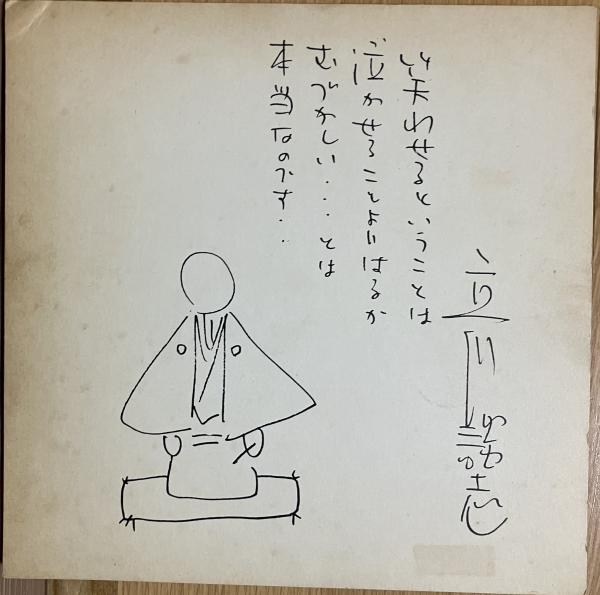 笑わせるということは
泣かせることよりはるか
むづかしい...とは
本当なのです..
立川談志